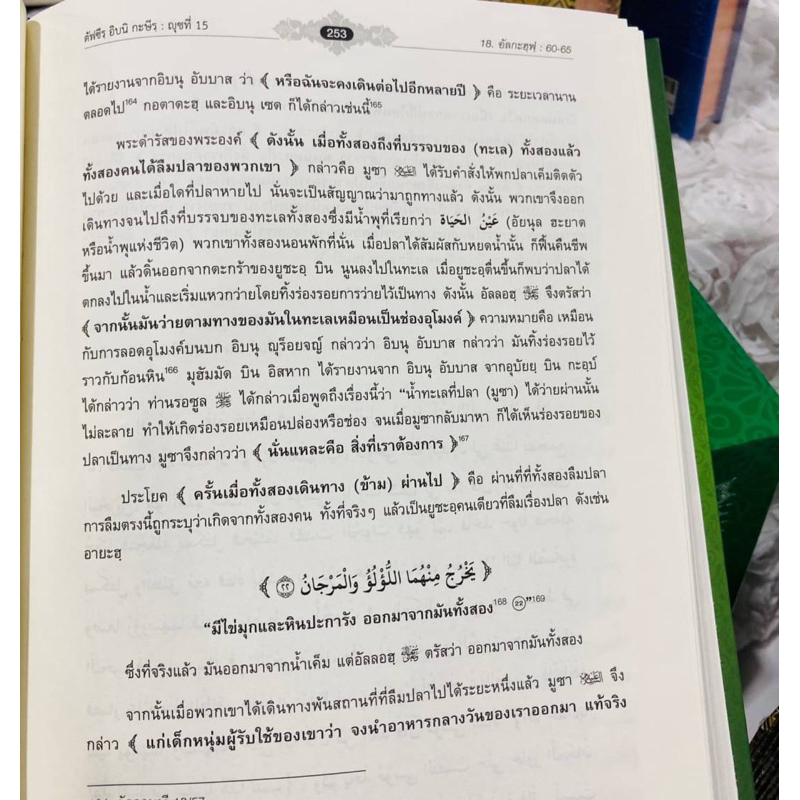 ตัฟซีรฺ อิบนิ กะษีรฺ : ญุซที่ 15
253
18. อัลกะฮฺฟฺ : 60-65
ได้รายงานจากอิบนุ อับบาส ว่า ﴾ หรือฉันจะคงเดินต่อไปอีกหลายปี ﴿ คือ ระยะเวลานาน
ตลอดไป¹⁶⁴ กอตาดะฮฺ และอิบนุ เซด ก็ได้กล่าวเช่นนี้¹⁶⁵
พระดำรัสของพระองค์ ﴾ ดังนั้น เมื่อทั้งสองถึงที่บรรจบของ (ทะเล) ทั้งสองแล้ว
ทั้งสองคนได้ลืมปลาของพวกเขา ﴿ กล่าวคือ มูซา ได้รับคำสั่งให้พกปลาเค็มติดตัว
ไปด้วย และเมื่อใดที่ปลาหายไป นั่นจะเป็นสัญญาณว่ามาถูกทางแล้ว ดังนั้น พวกเขาจึงออก
เดินทางจนไปถึงที่บรรจบของทะเลทั้งสองซึ่งมีน้ำพุที่เรียกว่า عَيْنُ الحَيَاة (อัยนุล ฮะยาต
หรือน้ำพุแห่งชีวิต) พวกเขาทั้งสองนอนพักที่นั่น เมื่อปลาได้สัมผัสกับหยดน้ำนั้น ก็ฟื้นคืนชีพ
ขึ้นมา แล้วดิ้นออกจากตะกร้าของยูชะอฺ บิน นูนลงไปในทะเล เมื่อยูชะอฺตื่นขึ้นก็พบว่าปลาได้
ตกลงไปในน้ำและเริ่มแหวกว่ายโดยทิ้งร่องรอยการว่ายไว้เป็นทาง ดังนั้น อัลลอฮฺ ﷻ จึงตรัสว่า
﴾ จากนั้นมันว่ายตามทางของมันในทะเลเหมือนเป็นช่องอุโมงค์ ﴿ ความหมายคือ เหมือน
กับการลอดอุโมงค์บนบก อิบนุ ญุร็อยจญ์ กล่าวว่า อิบนุ อับบาส กล่าวว่า มันทิ้งร่องรอยไว้
ราวกับก้อนหิน¹⁶⁶ มุฮัมมัด บิน อิสหาก ได้รายงานจาก อิบนุ อับบาส จากอุบัยยฺ บิน กะอฺบ์
ได้กล่าวว่า ท่านรอซูล ﷺ ได้กล่าวเมื่อพูดถึงเรื่องนี้ว่า “น้ำทะเลที่ปลา (มูซา) ได้ว่ายผ่านนั้น
ไม่ละลาย ทำให้เกิดร่องรอยเหมือนปล่องหรือช่อง จนเมื่อมูซากลับมาหา ก็ได้เห็นร่องรอยของ
ปลาเป็นทาง มูซาจึงกล่าวว่า ﴾ นั่นแหละคือ สิ่งที่เราต้องการ ﴿¹⁶⁷
ประโยค ﴾ ครั้นเมื่อทั้งสองเดินทาง (ข้าม) ผ่านไป ﴿ คือ ผ่านที่ที่ทั้งสองลืมปลา
การลืมตรงนี้ถูกระบุว่าเกิดจากทั้งสองคน ทั้งที่จริงๆ แล้วเป็นยูชะอฺคนเดียวที่ลืมเรื่องปลา ดังเช่น
อายะฮฺ
﴿ يَخْرُجُ مِنْهُمَا اللُّؤْلُؤُ وَالْمَرْجَانُ ٢٢ ﴾
“มีไข่มุกและหินปะการัง ออกมาจากมันทั้งสอง¹⁶⁸ ㉒”¹⁶⁹
ซึ่งที่จริงแล้ว มันออกมาจากน้ำเค็ม แต่อัลลอฮฺ ﷻ ตรัสว่า ออกมาจากมันทั้งสอง
จากนั้นเมื่อพวกเขาได้เดินทางพ้นสถานที่ที่ลืมปลาไปได้ระยะหนึ่งแล้ว มูซา จึง
กล่าว ﴾ แก่เด็กหนุ่มผู้รับใช้ของเขาว่า จงนำอาหารกลางวันของเราออกมา แท้จริง